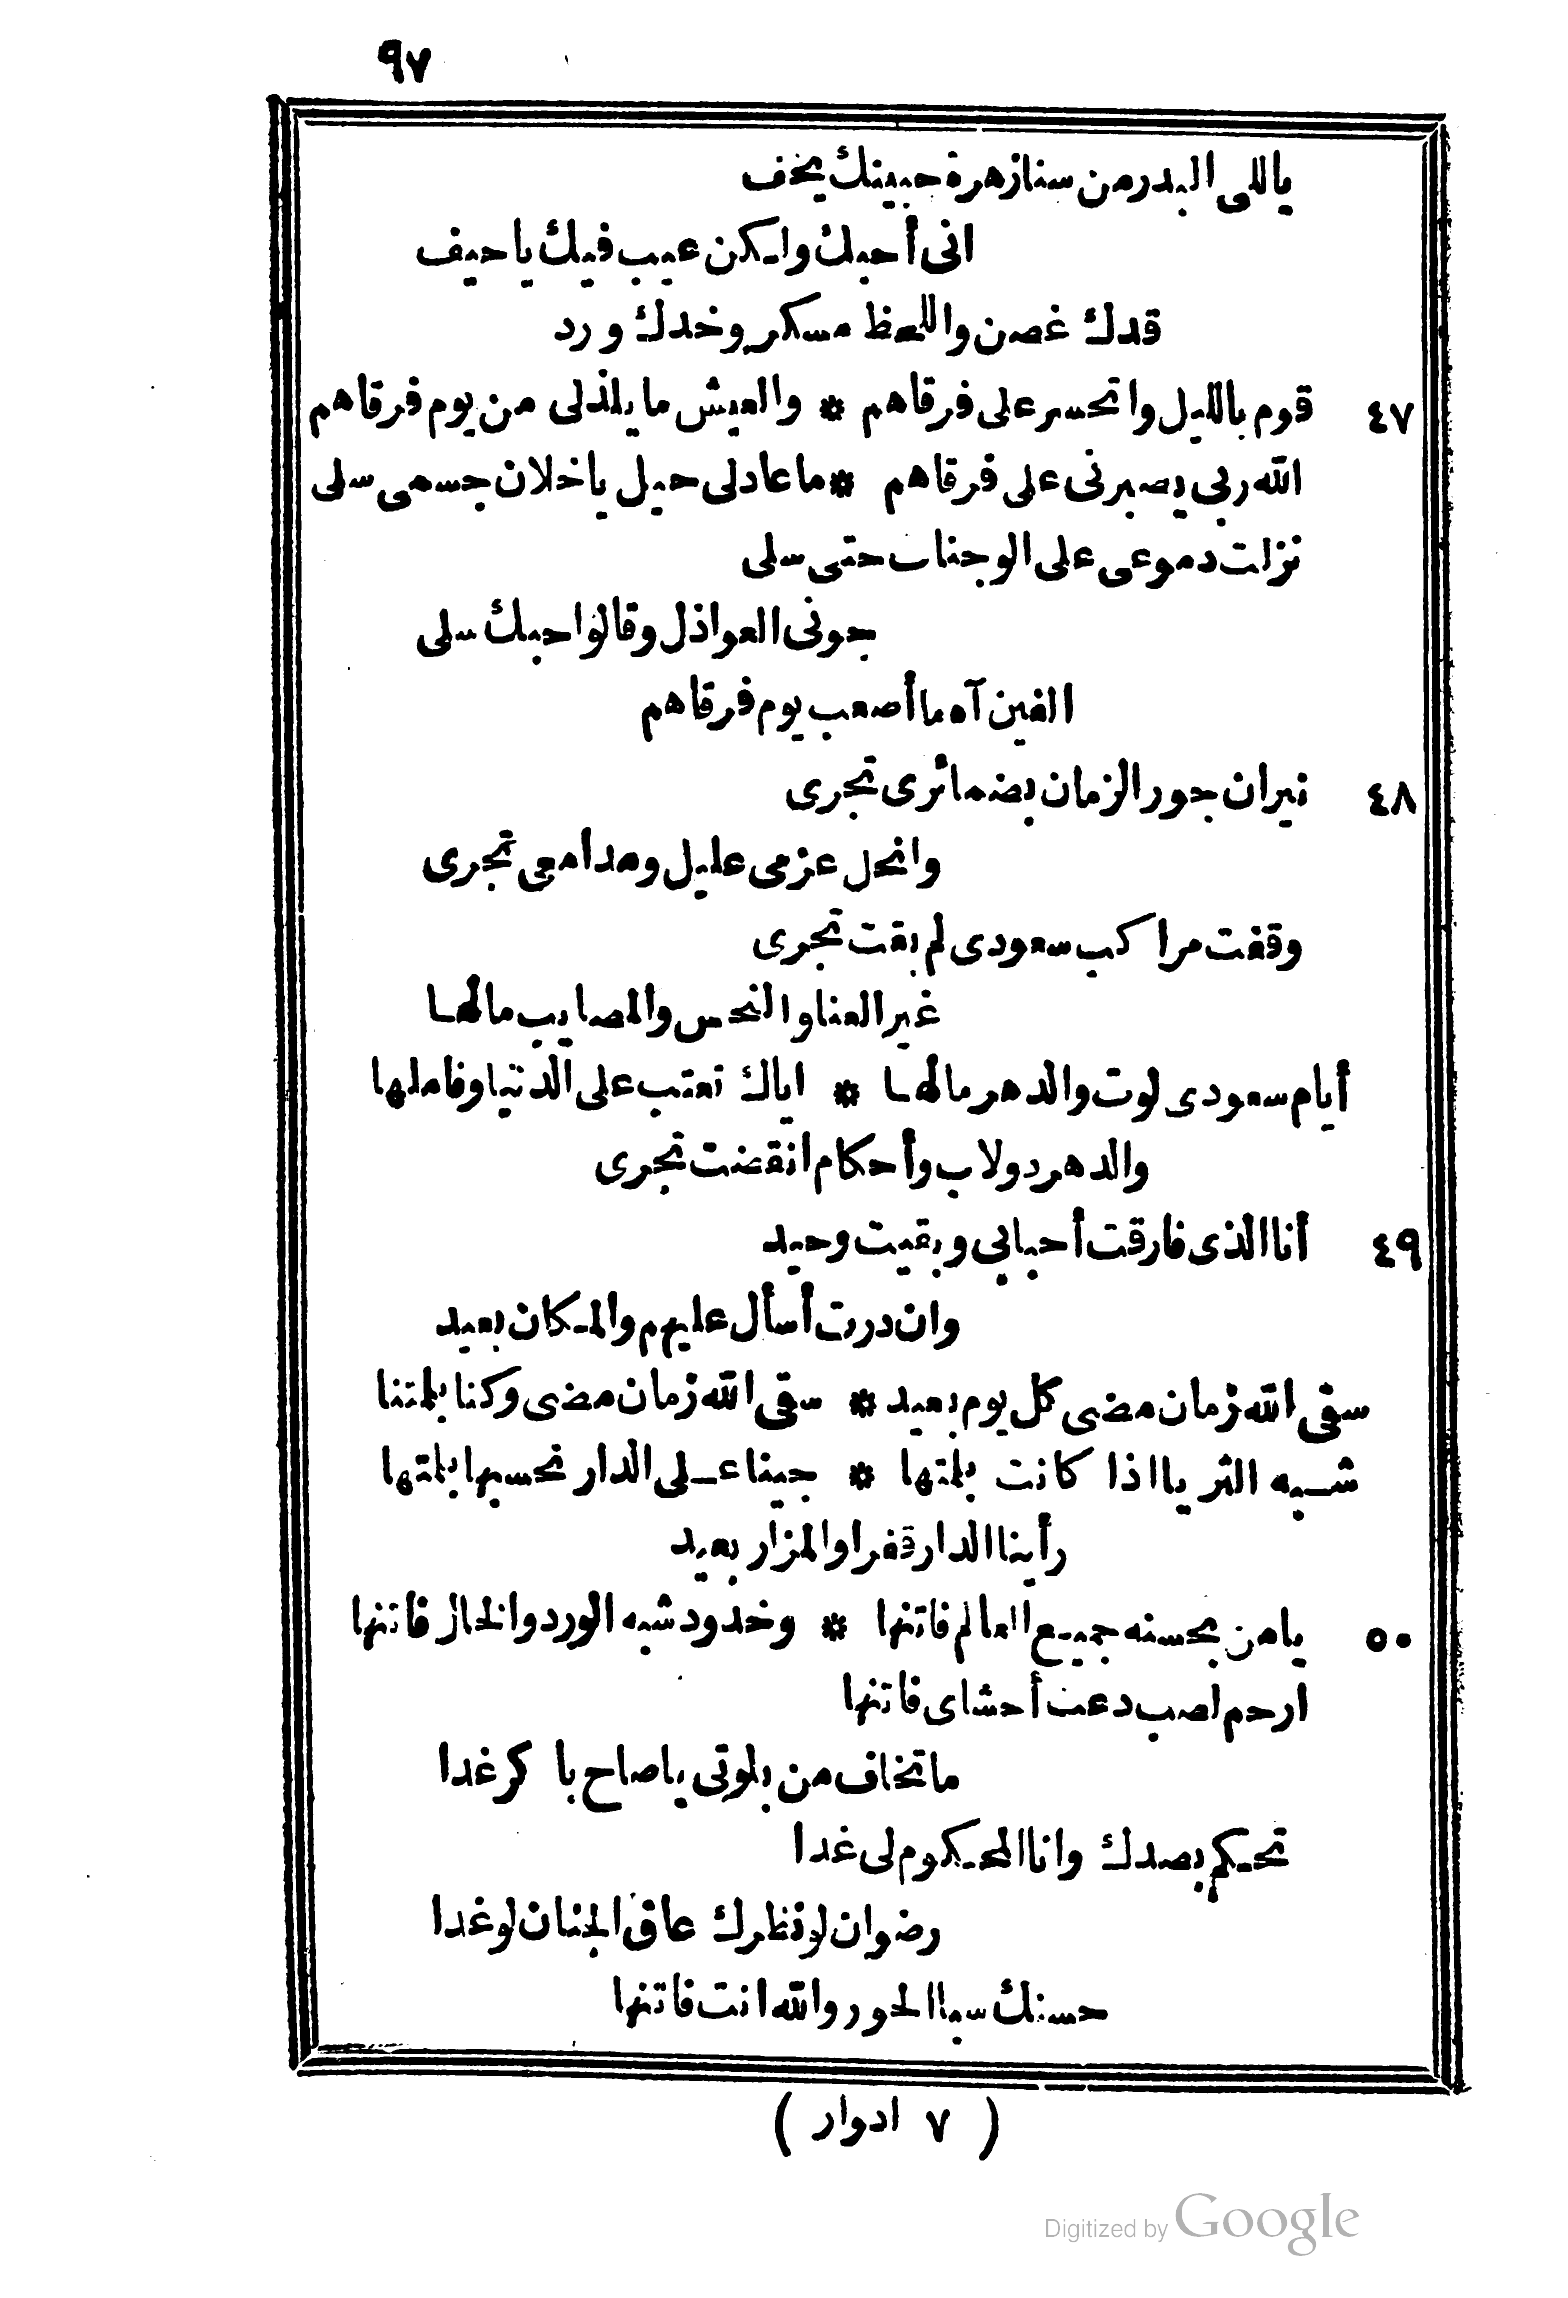 ٩٧
ياللى البدر من سنا زهرة جبينك يخف
انى أحبك ولكن عيب فيك ياحيف
قدك غصن واللحظ مسكر وخدك ورد
٤٧ قوم بالليل واتحسر على فرقاهم * والعيش ما يلذلى من يوم فرقاهم
الله ربى يصبرنى على فرقاهم * ماعادلى حيل ياخلان جسمى سلى
نزلت دموعى على الوجنات حتى سلى
جونى العواذل وقالوا حبك سلى
الفين آه ما أصعب يوم فرقاهم
٤٨ نيران جور الزمان بضمائرى تجرى
وانحل عزمى عليل ومدامعى تجرى
وقفت مراكب سعودى لم بقت تجرى
غير العنا والنحس والمصايب مالها
أيام سعودى لوت والدهر مالها * اياك تعتب على الدنيا وفاملها
والدهر دولاب وأحكام انقضت تجرى
٤٩ أنا الذى فارقت أحبابى وبقيت وحيد
وان درت أسأل عليهم والمكان بعيد
سقى الله زمان مضى كل يوم بعيد * سقى الله زمان مضى وكنا بلمتنا
شبه الثريا اذا كانت بلمتها * جينا على الدار نحسبها بلمتها
رأينا الدار قفرا والمزار بعيد
٥٠ يامن بحسنه جميع العالم فاتنها * وخدود شبه الورد والخال فاتنها
ارحم لصب دعت أحشاى فاتنها
ماتخاف من بلوتى ياصاح باكر غدا
تحكم بصدك وانا المحكوم لى غدا
رضوان لو نظرك عاف الجنان لو غدا
حسنك سبا الحور والله انت فاتنها
( ٧ ادوار )
Digitized by Google